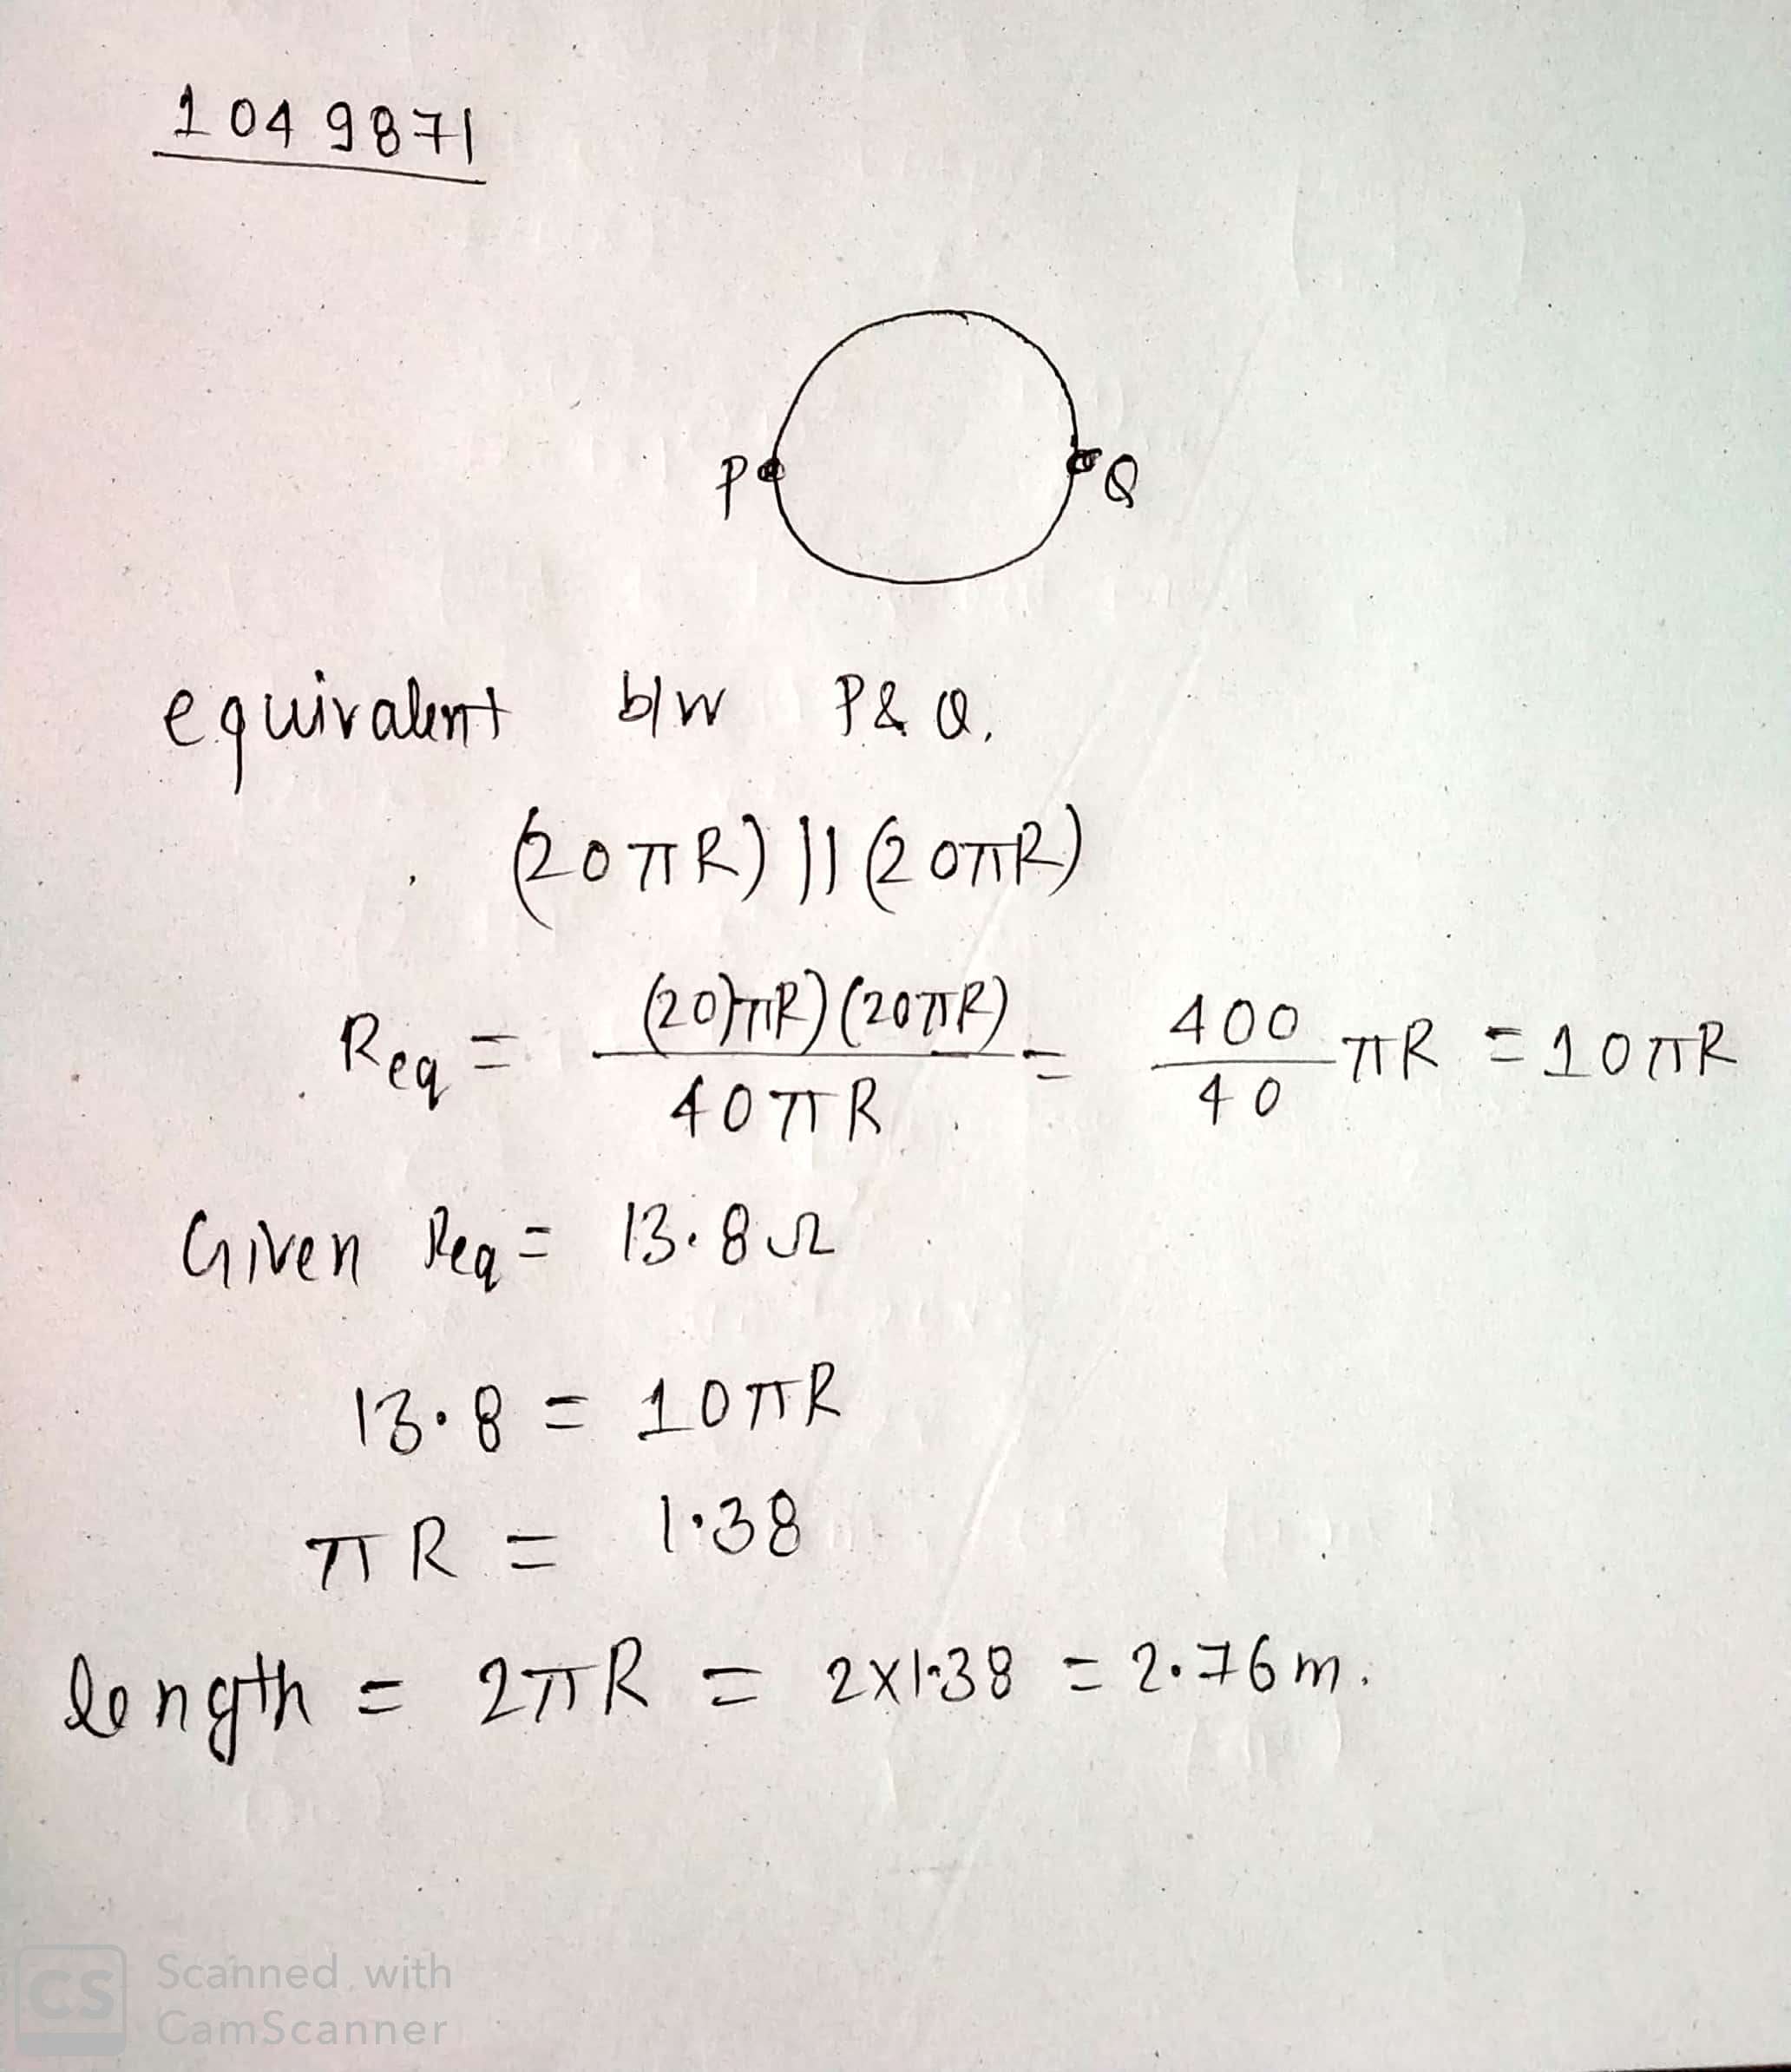 1049871
P Q
equivalent b/w P & Q.
(20πR) || (20πR)
Req = (20)πR)(20πR) / 40πR = 400/40 πR = 10πR
Given Req = 13.8Ω
13.8 = 10πR
πR = 1.38
length = 2πR = 2x1.38 = 2.76m.
CS Scanned with
CamScanner